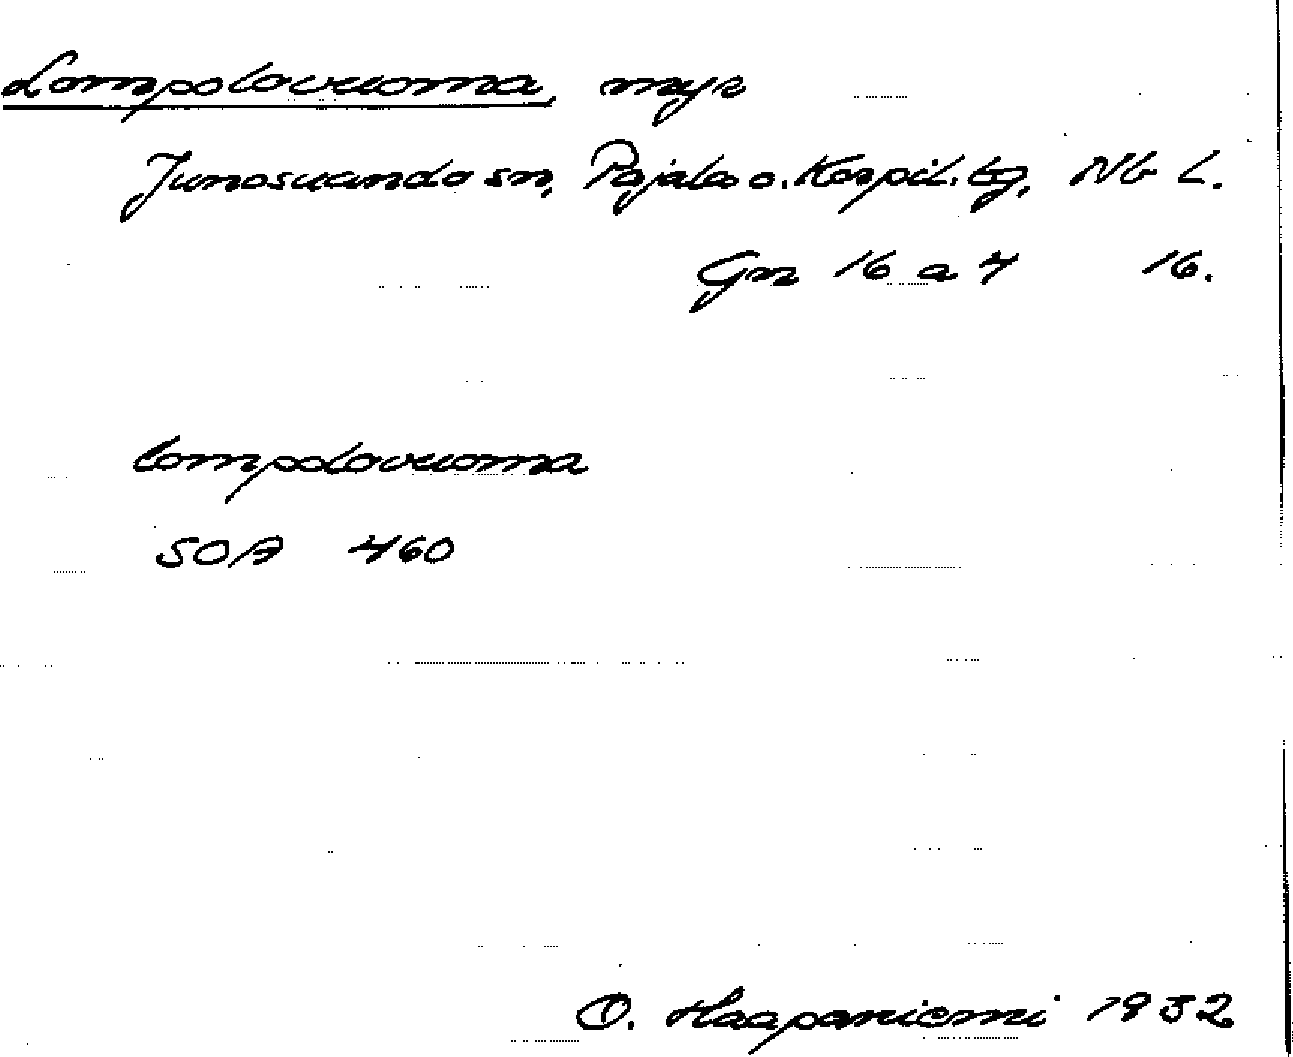 Lompolovuoma, myr
Junosuando sn, Pajala o. Korpil. tg, Nb L.
Gn 16 a 4 16.
lompolovuoma
SOA 460
O. Haapaniemi 1932